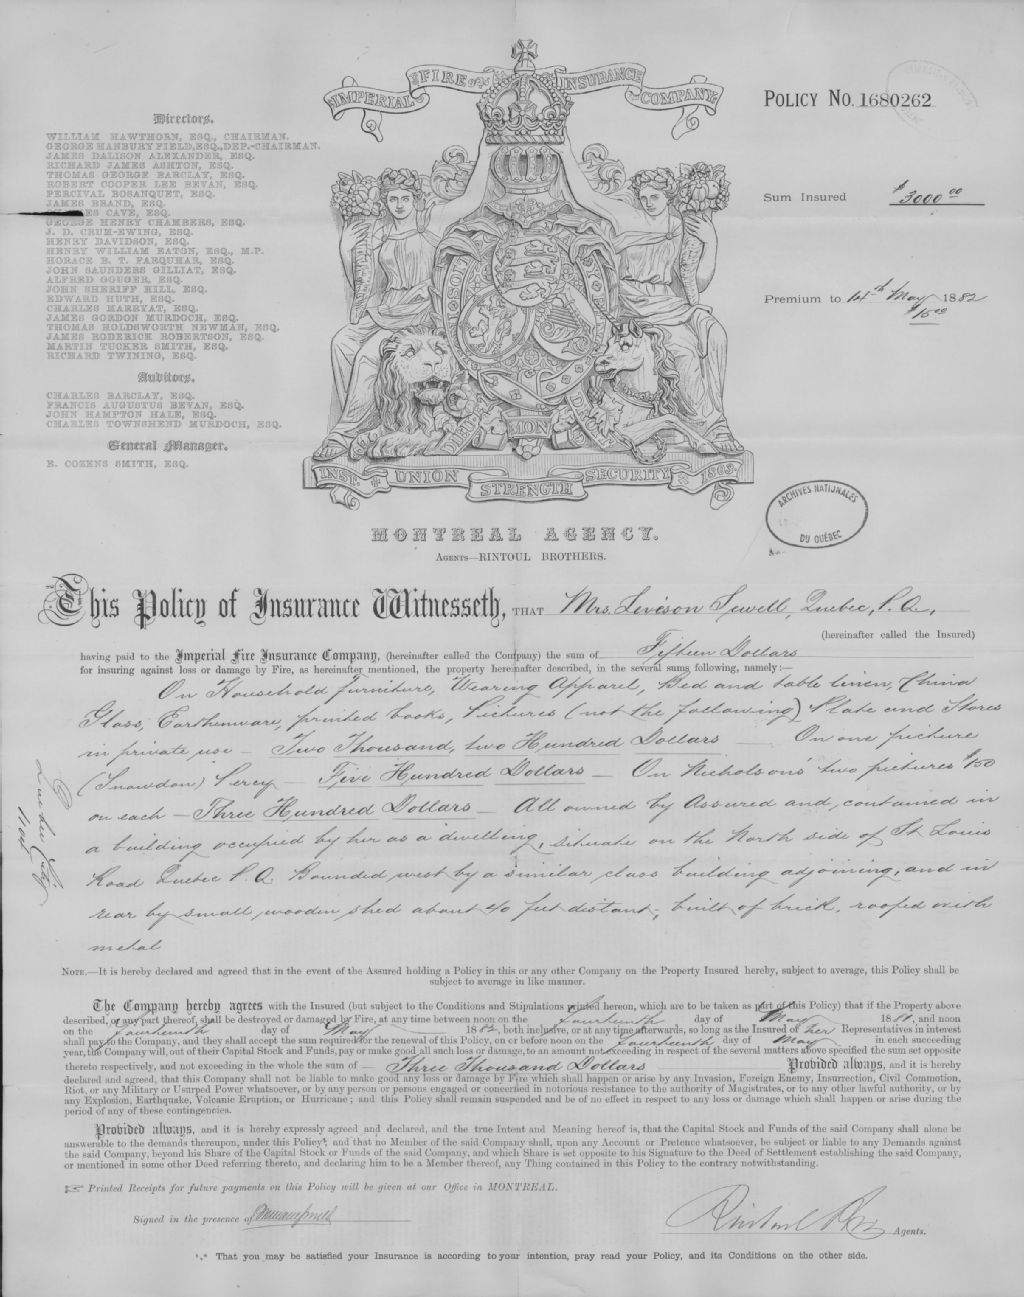 IMPERIAL FIRE INSURANCE COMPANY
POLICY NO. 1680262
Sum Insured $3000 00
Premium to 14th May 1882
$15 00
Directors.
WILLIAM HAWTHORN, ESQ., CHAIRMAN.
GEORGE HANBURY FIELD, ESQ., DEP.-CHAIRMAN.
JAMES DALISON ALEXANDER, ESQ.
RICHARD JAMES ASHTON, ESQ.
THOMAS GEORGE BARCLAY, ESQ.
ROBERT COOPER LEE BEVAN, ESQ.
PERCIVAL BOSANQUET, ESQ.
JAMES BRAND, ESQ.
CAVE, ESQ.
GEORGE HENRY CHAMBERS, ESQ.
J. D. CRUM-EWING, ESQ.
HENRY DAVIDSON, ESQ.
HENRY WILLIAM EATON, ESQ., M.P.
HORACE B. T. FARQUHAR, ESQ.
JOHN SAUNDERS GILLIAT, ESQ.
ALFRED GOUGER, ESQ.
JOHN SHERIFF HILL, ESQ.
EDWARD HUTH, ESQ.
CHARLES MARRYAT, ESQ.
JAMES GORDON MURDOCH, ESQ.
THOMAS HOLDSWORTH NEWMAN, ESQ.
JAMES RODERICK ROBERTSON, ESQ.
MARTIN TUCKER SMITH, ESQ.
RICHARD TWINING, ESQ.
Auditors.
CHARLES BARCLAY, ESQ.
FRANCIS AUGUSTUS BEVAN, ESQ.
JOHN HAMPTON HALE, ESQ.
CHARLES TOWNSHEND MURDOCH, ESQ.
General Manager.
E. COZENS SMITH, ESQ.
DIEU MON
INST. UNION STRENGTH SECURITY 1803.
ARCHIVES NATIONALES
DU QUÉBEC
MONTREAL AGENCY.
AGENTS—RINTOUL BROTHERS.
This Policy of Insurance Witnesseth, THAT Mrs. Leveson Sewell, Quebec, P.Q.,
(hereinafter called the Insured)
having paid to the Imperial Fire Insurance Company, (hereinafter called the Company) the sum of Fifteen Dollars
for insuring against loss or damage by Fire, as hereinafter mentioned, the property hereinafter described, in the several sums following, namely:—
On Household furniture, Wearing Apparel, Bed and table linen, China
Glass, Earthenware, printed books, Pictures (not the following) Plate and Stores
in private use — Two Thousand, two Hundred Dollars — On one picture
(Snowdon) Percy — Five Hundred Dollars — On Nicholsons' two pictures $150
on each — Three Hundred Dollars — All owned by Assured and, contained in
a building occupied by her as a dwelling, situate on the North side of St. Louis
Road Quebec P.Q. Bounded west by a similar class building adjoining, and in
rear by small wooden shed about 40 feet distant, built of brick, roofed with
metal
NOTE.—It is hereby declared and agreed that in the event of the Assured holding a Policy in this or any other Company on the Property Insured hereby, subject to average, this Policy shall be
subject to average in like manner.
The Company hereby agrees with the Insured (but subject to the Conditions and Stipulations printed hereon, which are to be taken as part of this Policy) that if the Property above
described, or any part thereof, shall be destroyed or damaged by Fire, at any time between noon on the fourteenth day of May 1881, and noon
on the fourteenth day of May 1882, both inclusive, or at any time afterwards, so long as the Insured or her Representatives in interest
shall pay to the Company, and they shall accept the sum required for the renewal of this Policy, on or before noon on the fourteenth day of May in each succeeding
year, the Company will, out of their Capital Stock and Funds, pay or make good all such loss or damage, to an amount not exceeding in respect of the several matters above specified the sum set opposite
thereto respectively, and not exceeding in the whole the sum of — Three Thousand Dollars Provided always, and it is hereby
declared and agreed, that this Company shall not be liable to make good any loss or damage by Fire which shall happen or arise by any Invasion, Foreign Enemy, Insurrection, Civil Commotion,
Riot, or any Military or Usurped Power whatsoever, or by any person or persons engaged or concerned in notorious resistance to the authority of Magistrates, or to any other lawful authority, or by
any Explosion, Earthquake, Volcanic Eruption, or Hurricane; and this Policy shall remain suspended and be of no effect in respect to any loss or damage which shall happen or arise during the
period of any of these contingencies.
Provided always, and it is hereby expressly agreed and declared, and the true Intent and Meaning hereof is, that the Capital Stock and Funds of the said Company shall alone be
answerable to the demands thereupon, under this Policy; and that no Member of the said Company shall, upon any Account or Pretence whatsoever, be subject or liable to any Demands against
the said Company, beyond his Share of the Capital Stock or Funds of the said Company, and which Share is set opposite to his Signature to the Deed of Settlement establishing the said Company,
or mentioned in some other Deed referring thereto, and declaring him to be a Member thereof, any Thing contained in this Policy to the contrary notwithstanding.
Printed Receipts for future payments on this Policy will be given at our Office in MONTREAL.
Signed in the presence of
Rintoul Bros Agents.
*.* That you may be satisfied your Insurance is according to your intention, pray read your Policy, and its Conditions on the other side.